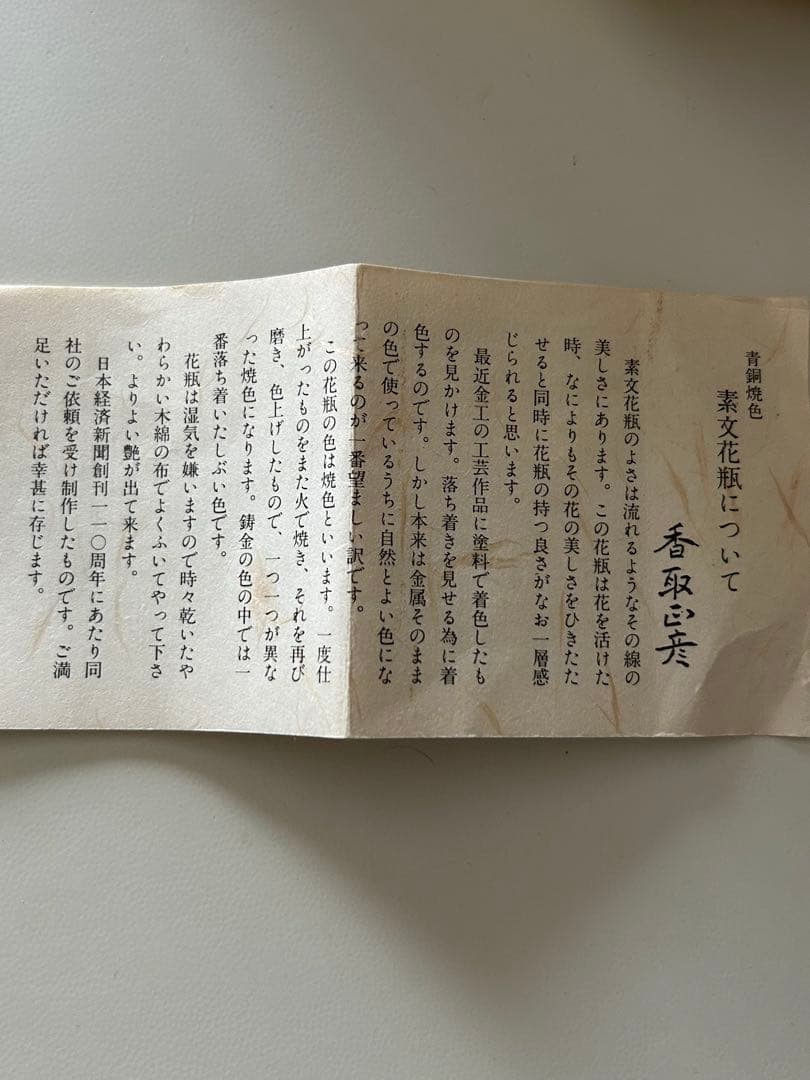 青銅焼色
素文花瓶について
香取正彦
素文花瓶のよさは流れるようなその線の
美しさにあります。この花瓶は花を活けた
時、なによりもその花の美しさをひきたた
せると同時に花瓶の持つ良さがなお一層感
じられると思います。
最近金工の工芸作品に塗料で着色したも
のを見かけます。落ち着きを見せる為に着
色するのです。しかし本来は金属そのまま
の色で使っているうちに自然とよい色にな
って来るのが一番望ましい訳です。
この花瓶の色は焼色といいます。一度仕
上がったものをまた火で焼き、それを再び
磨き、色上げしたもので、一つ一つが異な
った焼色になります。鋳金の色の中では一
番落ち着いたしぶい色です。
花瓶は湿気を嫌いますので時々乾いたや
わらかい木綿の布でよくふいてやって下さ
い。よりよい艶が出て来ます。
日本経済新聞創刊一一〇周年にあたり同
社のご依頼を受け制作したものです。ご満
足いただければ幸甚に存じます。